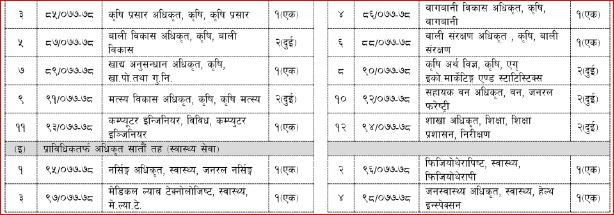 ३ ८५/०७७-७८ कृषि प्रसार अधिकृत, कृषि, कृषि प्रसार १(एक) ४ ८६/०७७-७८ बागवानी विकास अधिकृत, कृषि, बागवानी १(एक)
५ ८७/०७७-७८ बाली विकास अधिकृत, कृषि, बाली विकास २(दुई) ६ ८८/०७७-७८ बाली संरक्षण अधिकृत , कृषि, बाली संरक्षण १(एक)
७ ८९/०७७-७८ खाद्य अनुसन्धान अधिकृत, कृषि, खा.पो.तथा गु.नि. १(एक) ८ ९०/०७७-७८ कृषि अर्थ विज्ञ, कृषि, एग्रु इको मार्केटिङ्ग एण्ड स्टाटिस्टिक्स २(दुई)
९ ९१/०७७-७८ मत्स्य विकास अधिकृत, कृषि, कृषि मत्स्य २(दुई) १० ९२/०७७-७८ सहायक वन अधिकृत, वन, जनरल फरेष्ट्री २(दुई)
११ ९३/०७७-७८ कम्प्युटर इन्जिनियर, विविध, कम्प्युटर इञ्जिनियर १(एक) १२ ९४/०७७-७८ शाखा अधिकृत, शिक्षा, शिक्षा प्रशासन, निरीक्षण २(दुई)
(इ) प्राविधिकतर्फ अधिकृत सातौं तह (स्वास्थ्य सेवा)
१ ९५/०७७-७८ नर्सिङ्ग अधिकृत, स्वास्थ्य, जनरल नर्सिङ्ग १(एक) २ ९६/०७७-७८ फिजियोथेरापिष्ट, स्वास्थ्य, फिजियोथेरापी १(एक)
३ ९७/०७७-७८ मेडिकल ल्याव टेक्नोलोजिष्ट, स्वास्थ्य, मे.ल्या.टे. १(एक) ४ ९८/०७७-७८ जनस्वास्थ्य अधिकृत, स्वास्थ्य, हेल्थ इन्स्पेक्सन १(एक)